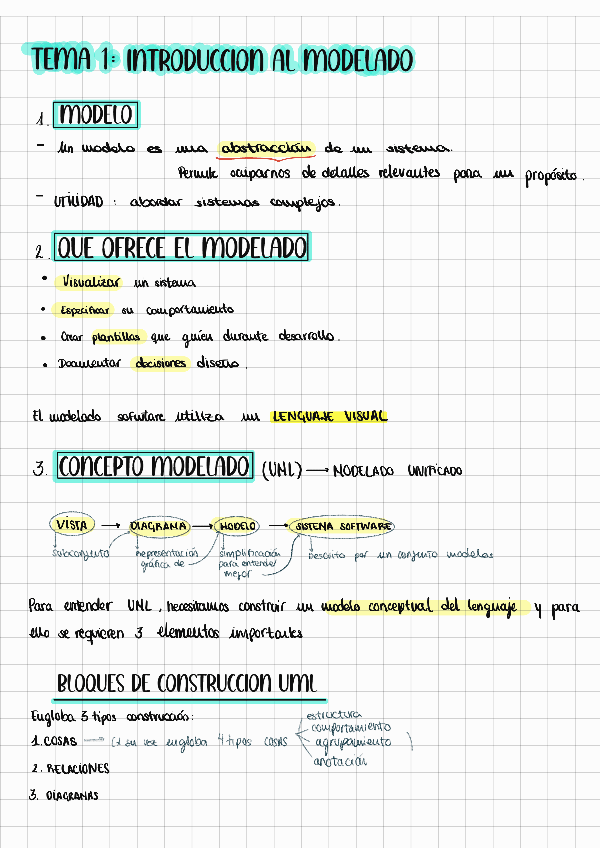 TEMA 1: INTRODUCCION AL MODELADO
1. MODELO
- Un modelo es una abstracción de un sistema.
Permite ocuparnos de detalles relevantes para un propósito.
- UTILIDAD : abordar sistemas complejos.
2. QUE OFRECE EL MODELADO
• Visualizar un sistema
• Especificar su comportamiento
• Crear plantillas que guíen durante desarrollo.
• Documentar decisiones diseño.
El modelado software utiliza un LENGUAJE VISUAL
3. CONCEPTO MODELADO (UML) → MODELADO UNIFICADO
VISTA → DIAGRAMA → MODELO → SISTEMA SOFTWARE
subconjunto representación simplificación Descrito por un conjunto modelos
gráfica de para entender
mejor
Para entender UML, necesitamos construir un modelo conceptual del lenguaje y para
ello se requieren 3 elementos importantes
BLOQUES DE CONSTRUCCION UML
Engloba 3 tipos construcción:
estructura
comportamiento
1. COSAS → (a su vez engloba 4 tipos cosas agrupamiento )
anotación
2. RELACIONES
3. DIAGRAMAS